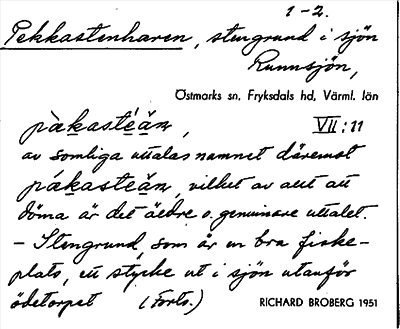 1-2.
Pekkastenharen, stengrund i sjön
Runnsjön,
Östmarks sn, Fryksdals hd, Värml. län
pàkastéän, VII:11
av somliga uttalas namnet däremot
pákastéän, vilket av allt att
döma är det äldre o. genuinare uttalet.
– Stengrund, som är en bra fiske-
plats, ett stycke ut i sjön utanför
ödetorpet (Forts.) RICHARD BROBERG 1951